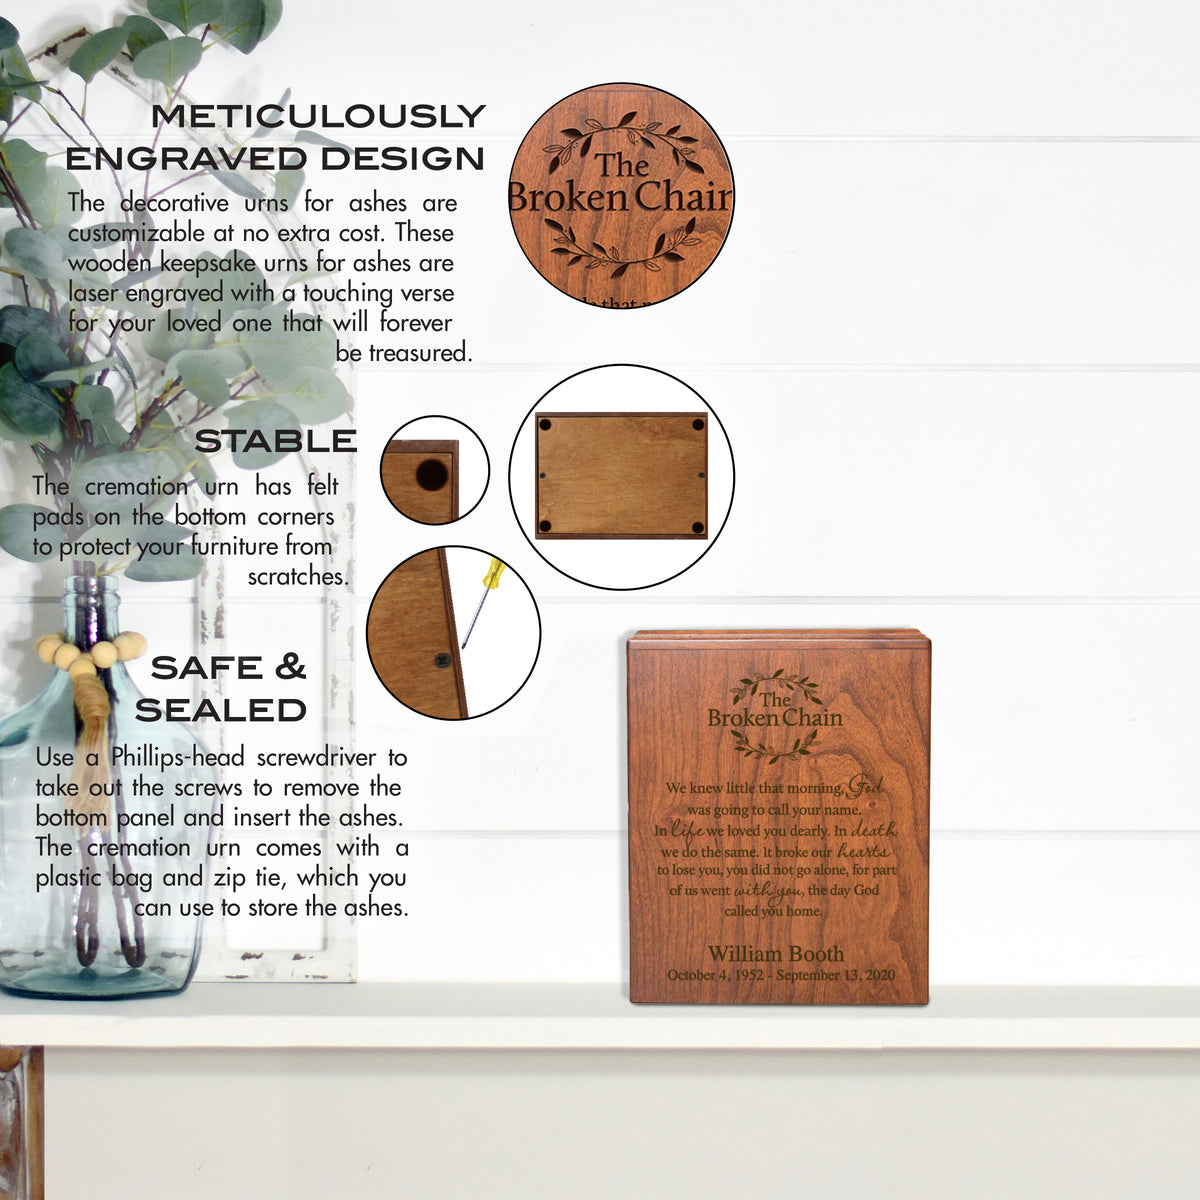 METICULOUSLY
ENGRAVED DESIGN
The decorative urns for ashes are
customizable at no extra cost. These
wooden keepsake urns for ashes are
laser engraved with a touching verse
for your loved one that will forever
be treasured.
The
Broken Chain
that
STABLE
The cremation urn has felt
pads on the bottom corners
to protect your furniture from
scratches.
SAFE &
SEALED
Use a Phillips-head screwdriver to
take out the screws to remove the
bottom panel and insert the ashes.
The cremation urn comes with a
plastic bag and zip tie, which you
can use to store the ashes.
The
Broken Chain
We knew little that morning, God
was going to call your name.
In life we loved you dearly. In death
we do the same. It broke our hearts
to lose you, you did not go alone, for part
of us went with you, the day God
called you home.
William Booth
October 4, 1952 - September 13, 2020